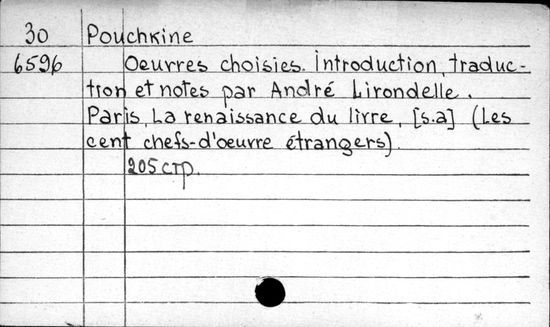 30 Pouchkine
6596 Oeuvres choisies. Introduction, traduc-
tion et notes par André Lirondelle.
Paris, La renaissance du livre, [s.a] (Les
cent chefs-d'oeuvre étrangers).
205 стр.